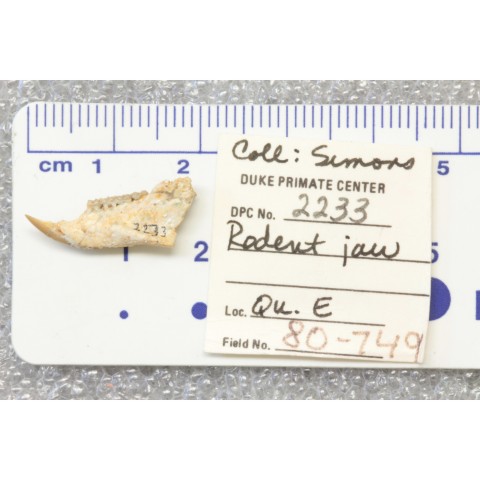 cm 1 2 5
Coll: Simons
DUKE PRIMATE CENTER
DPC No. 2233
Rodent jaw
Loc. Qu. E
Field No. 80-749
2233
1 2 5